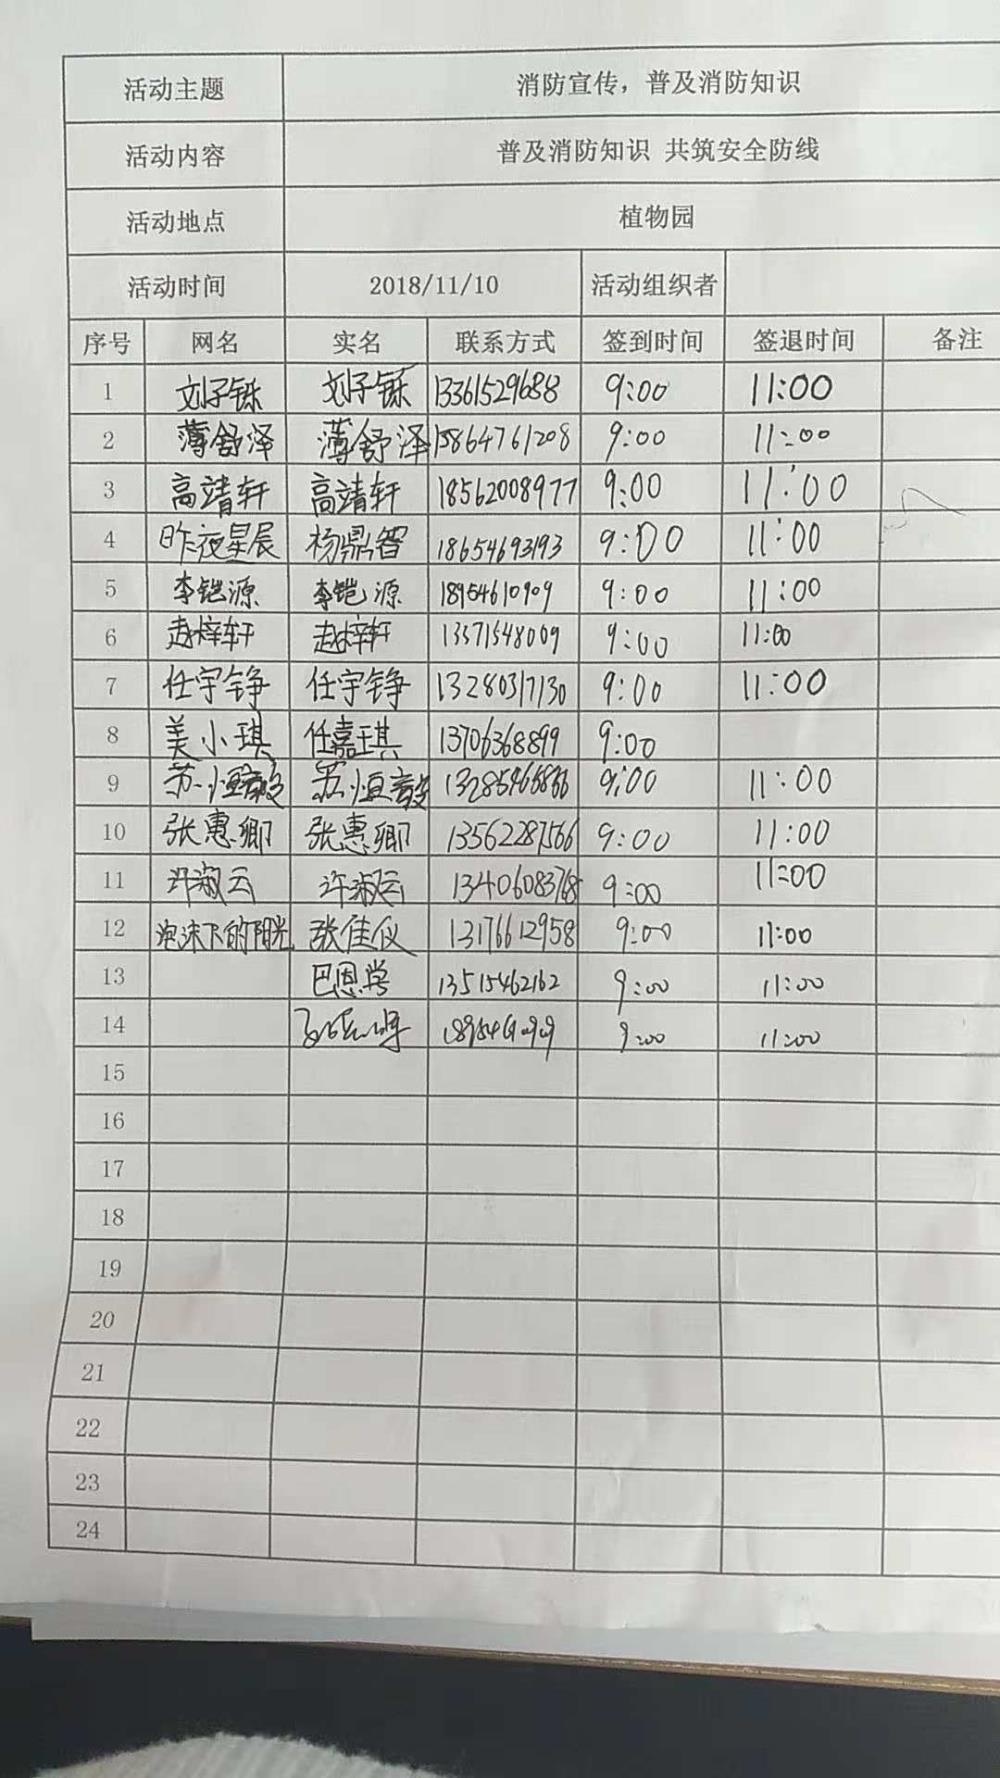 活动主题 消防宣传，普及消防知识
活动内容 普及消防知识 共筑安全防线
活动地点 植物园
活动时间 2018/11/10 活动组织者
序号 网名 实名 联系方式 签到时间 签退时间 备注
1 刘子铄 刘子铄 13361529688 9:00 11:00
2 薄舒泽 薄舒泽 15864761208 9:00 11:00
3 高靖轩 高靖轩 18562008977 9:00 11:00
4 昨夜星辰 杨鼎智 18654693193 9:00 11:00
5 李铠源 李铠源 18954610909 9:00 11:00
6 赵梓轩 赵梓轩 13371548009 9:00 11:00
7 任宇铮 任宇铮 13280317130 9:00 11:00
8 美小琪 任嘉琪 13706368899 9:00
9 苏恒毅 苏恒毅 9:00 11:00
10 张惠卿 张惠卿 13562287566 9:00 11:00
11 许淑云 许淑云 13406083768 9:00 11:00
12 泡沫下的阳光 张佳仪 13176612958 9:00 11:00
13 巴恩学 13515462162 9:00 11:00
14 9:00 11:00
15
16
17
18
19
20
21
22
23
24